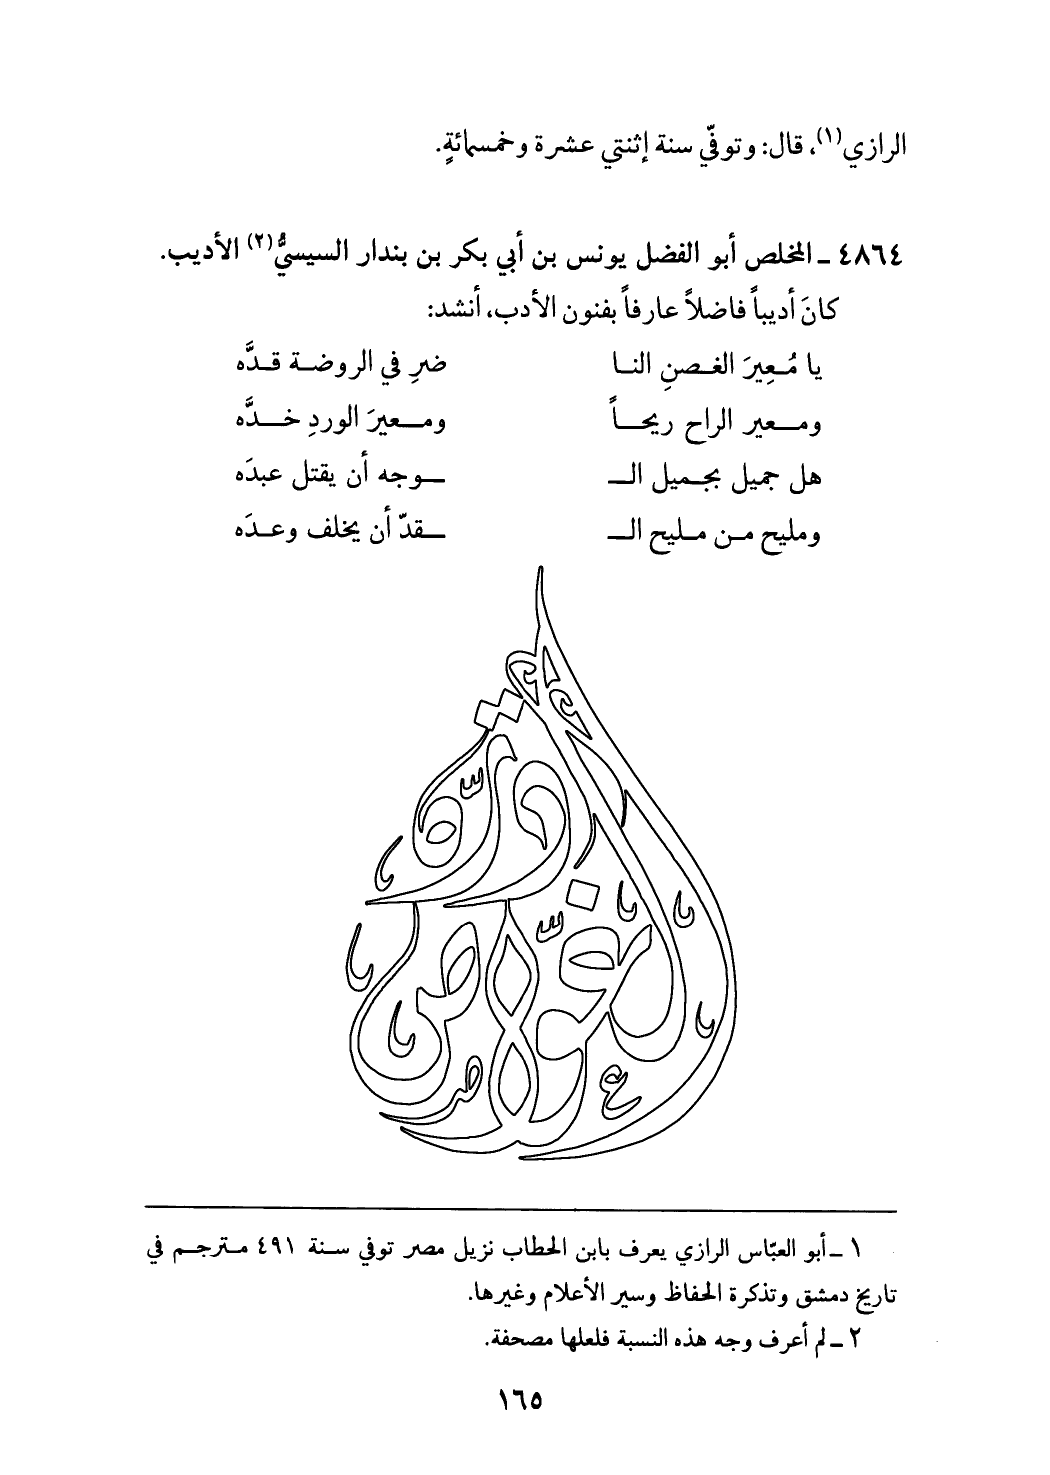 الرازي(١)، قال: وتوفّي سنة إثنتي عشرة وخمسمائةٍ.
٤٨٦٤ ـ المخلص أبو الفضل يونس بن أبي بكر بن بندار السيسيُّ(٢) الأديب.
كانَ أديباً فاضلاً عارفاً بفنون الأدب، أنشد:
يا مُـعِيرَ الغـصنِ النـا ضرِ في الروضـة قـدَّه
ومـــعير الراح ريحـــاً ومـــعيرَ الوردِ خـــدَّه
هل جميل بجـميل الـــ ـــوجه أن يقتل عبدَه
ومليح مـن مـليح الـــ ـــقدّ أن يخلف وعـدَه
١ ـ أبو العبّاس الرازي يعرف بابن الحطاب نزيل مصر توفي سـنة ٤٩١ مـترجـم في
تاريخ دمشق وتذكرة الحفاظ وسير الأعلام وغيرها.
٢ ـ لم أعرف وجه هذه النسبة فلعلها مصحفة.
١٦٥